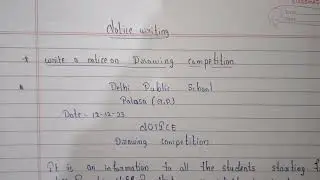 Notice writing
* write a notice on Drawing competition
Delhi Public School
Palasa (A.P)
Date - 12-12-23
NOTICE
Drawing competition
It is an information to all the students starting